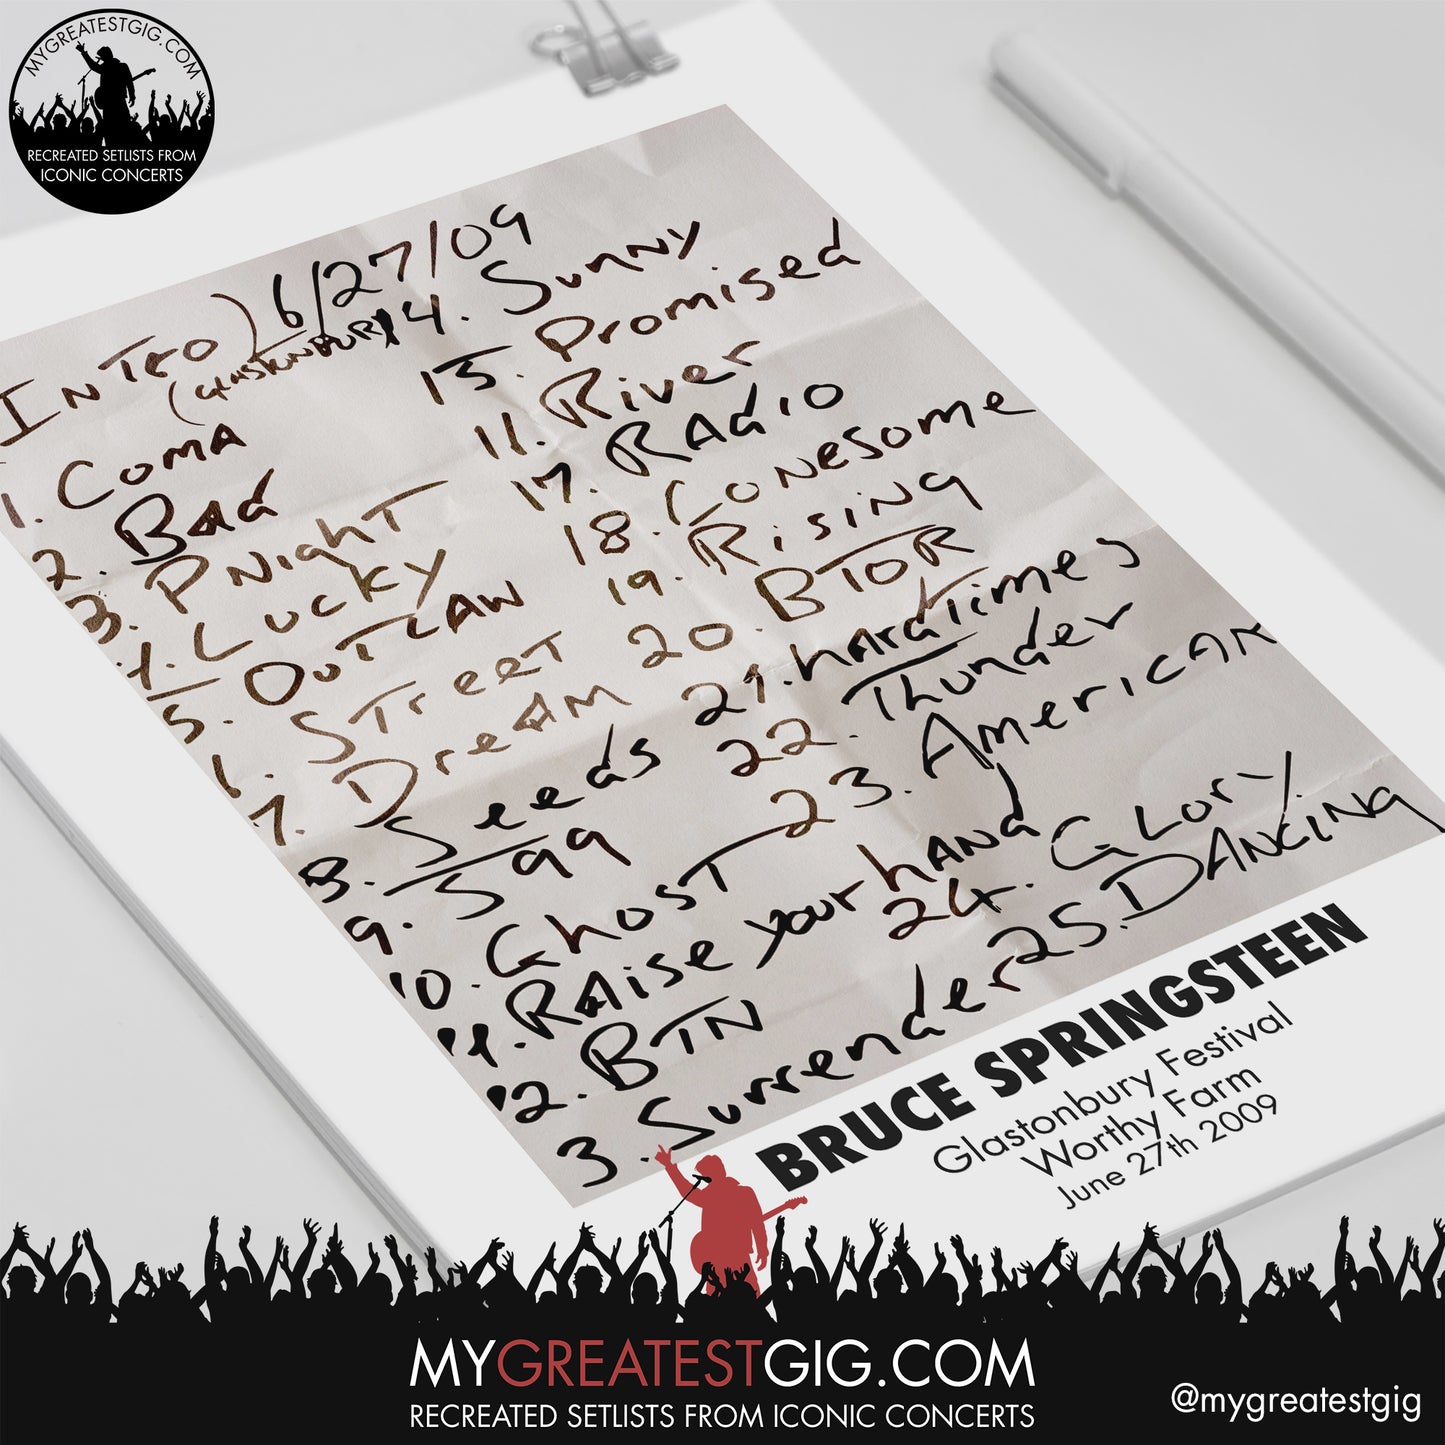 MYGREATESTGIG.COM
RECREATED SETLISTS FROM
ICONIC CONCERTS
INTRO) 6/27/09
(GLASTONBURY)
1. COMA
2. BAd
3. PNIghT
4. LUCKY
5. OUTLAW
6. STreeT
7. DreAM
8. Seeds
9. J99
10. GhosT
11. RAise your hANd
12. BTN
3. Surrender
14. SunnY
15. Promised
16. River
17. RAdio
18. LONesome
19. RisiNg
20. BTOR
21. hArdTimes
22. Thunder
23. AmericAN
24. GLory
25. DANCING
BRUCE SPRINGSTEEN
Glastonbury Festival
Worthy Farm
June 27th 2009
MYGREATESTGIG.COM
RECREATED SETLISTS FROM ICONIC CONCERTS
@mygreatestgig